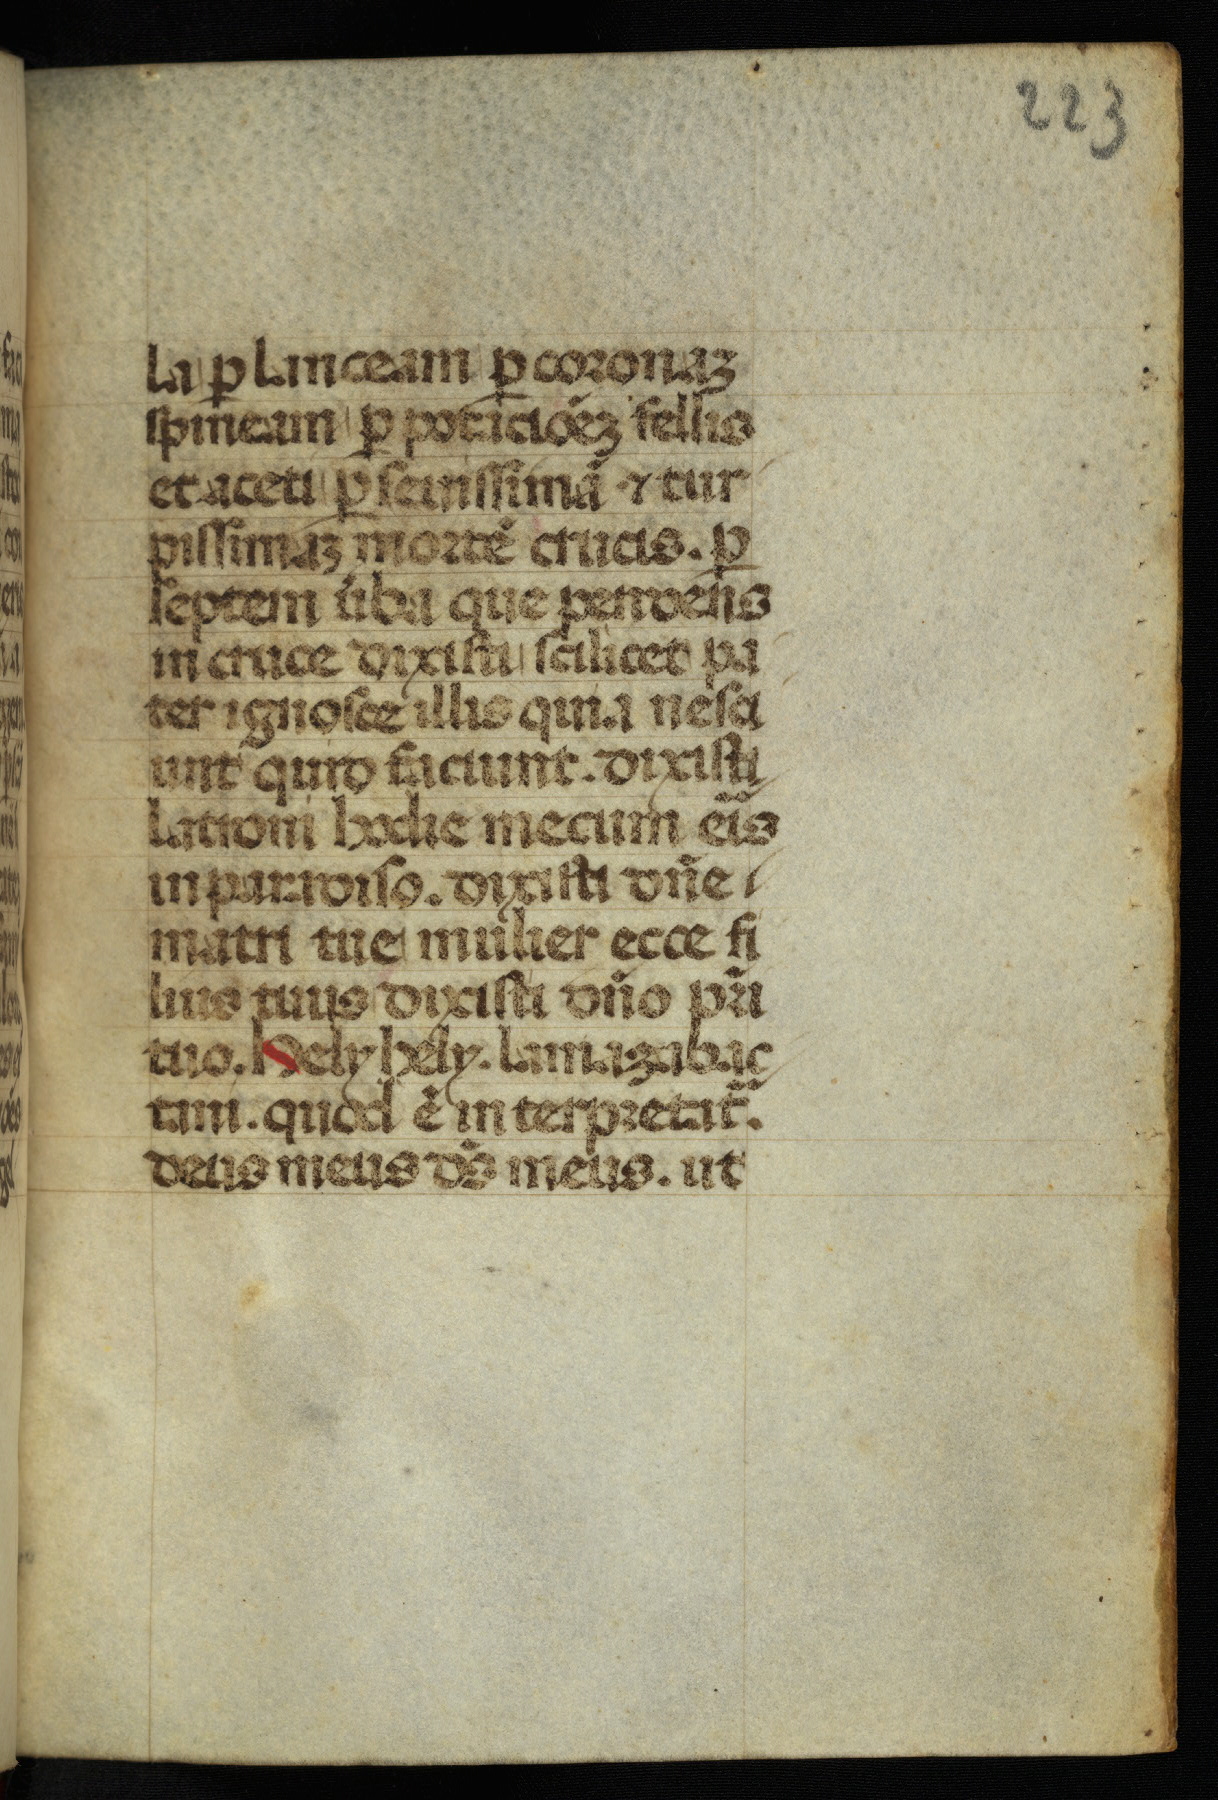 223
la ꝑ lanceam ꝑ coronaʒ
spineam ꝑ potacioēʒ fellis
et aceti ꝑ scinissimā ⁊ tur
pissimaʒ mortē crucis. ꝑ
septem ūba que pendens
in cruce dixisti scilicet pa
ter ignosce illis quia nesci
unt quid faciunt. dixisti
latroni hodie mecum eris
in paradiso. dixisti dn̄e
matri tue mulier ecce fi
lius tuus dixisti dn̄o pr̄i
tuo. Hely hely. lamazabac
tani. quod ē interpretat᷑.
deus meus ds̄ meus. ut